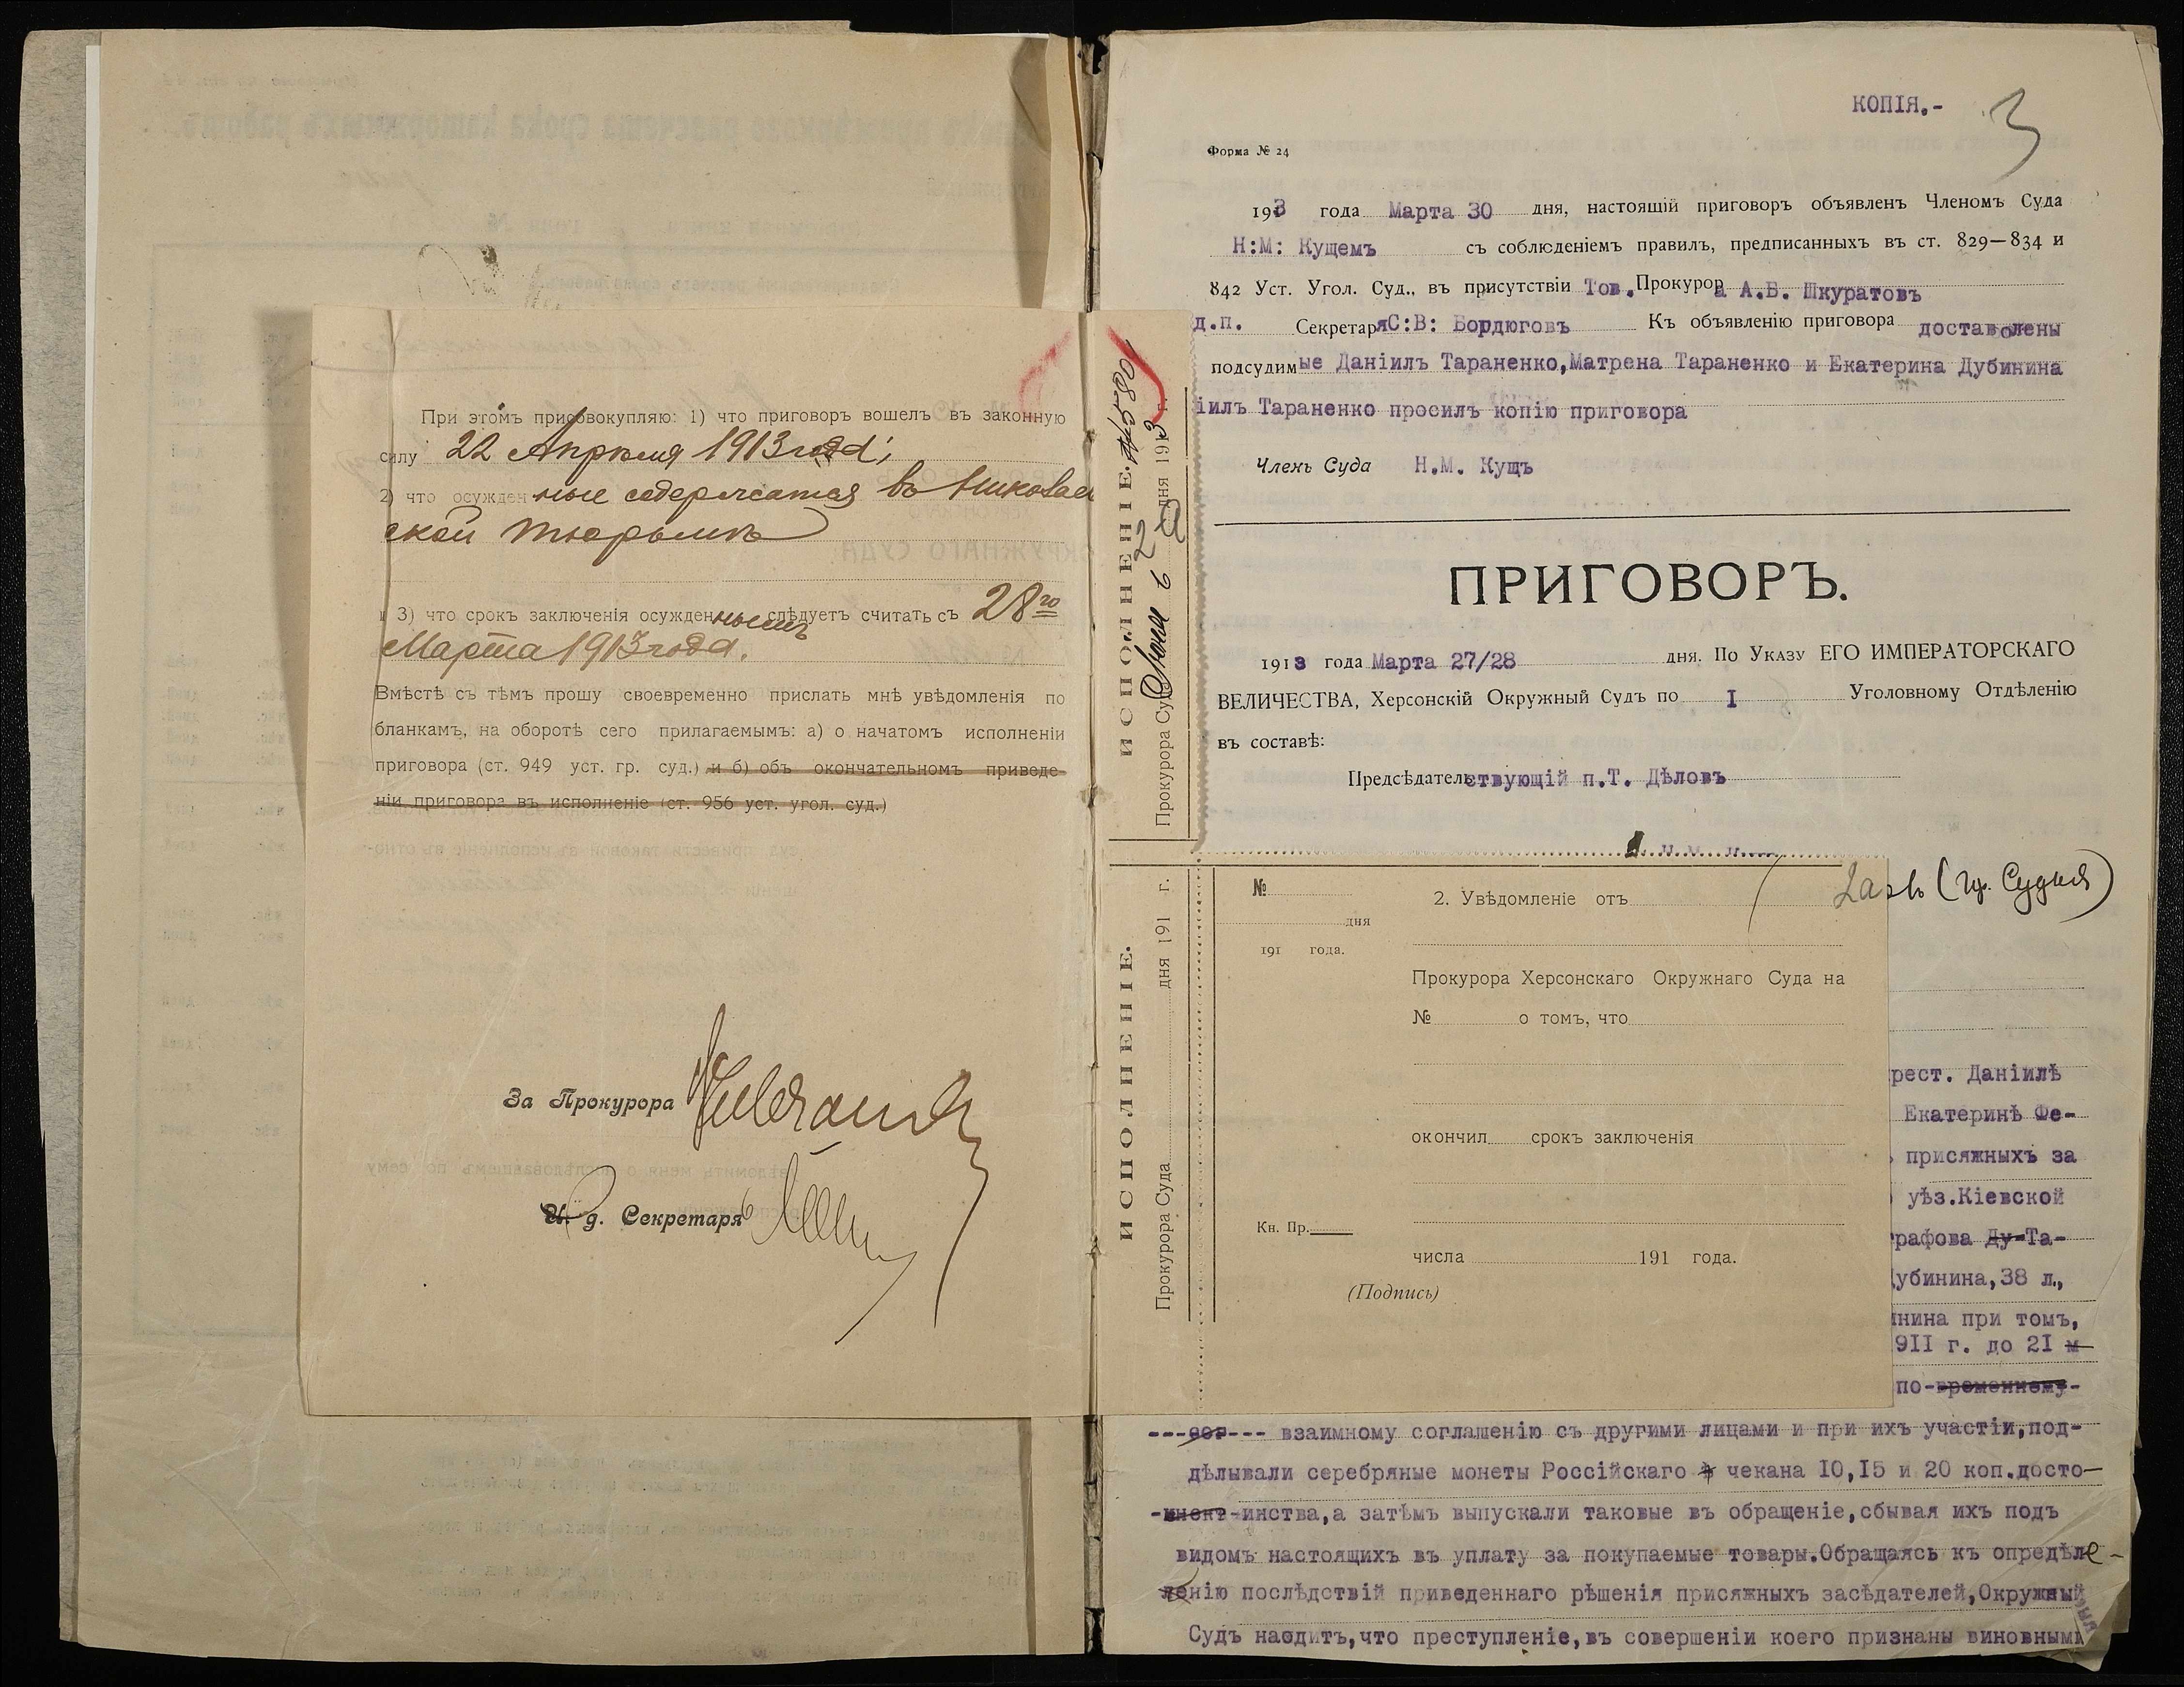 При этомъ присовокупляю: 1) что приговоръ вошелъ въ законную
силу 22 Апрѣля 1913 года;
2) что осужденные содержатся въ Николаев
ской тюрьмѣ
и 3) что срокъ заключенія осужденнымъ слѣдуетъ считать съ 28го
Марта 1913 года.
Вмѣстѣ съ тѣмъ прошу своевременно прислать мнѣ увѣдомленія по
бланкамъ, на оборотѣ сего прилагаемымъ: а) о начатомъ исполненіи
приговора (ст. 949 уст. гр. суд.) и б) объ окончательномъ приведе-
ніи приговора въ исполненіе (ст. 956 уст. угол. суд.)
За Прокурора
И. д. Секретаря
ИСПОЛНЕНІЕ. №580
Прокурора Суда Іюня 6 дня 1913 г.
ИСПОЛНЕНІЕ.
Прокурора Суда дня 191 г.
КОПІЯ.-
3
Форма № 24
1913 года Марта 30 дня, настоящій приговоръ объявленъ Членомъ Суда
Н:М: Кущемъ съ соблюденіемъ правилъ, предписанныхъ въ ст. 829—834 и
842 Уст. Угол. Суд., въ присутствіи Тов. Прокурора А.Б. Шкуратовъ
д.п. Секретаря С:В: Бордюговъ Къ объявленію приговора доставлены
подсудимые Даніилъ Тараненко, Матрена Тараненко и Екатерина Дубинина
іилъ Тараненко просилъ копію приговора
Членъ Суда Н.М. Кущъ
ПРИГОВОРЪ.
1913 года Марта 27/28 дня. По Указу ЕГО ИМПЕРАТОРСКАГО
ВЕЛИЧЕСТВА, Херсонскій Окружный Судъ по I Уголовному Отдѣленію
въ составѣ:
Предсѣдательствующій п.Т. Дѣловъ
№
2. Увѣдомленіе отъ
дня
191 года.
Прокурора Херсонскаго Окружнаго Суда на
№ о томъ, что
окончил срокъ заключенія
Кн. Пр.
числа 191 года.
(Подпись)
рест. Даніилѣ
Екатеринѣ Фе-
присяжныхъ за
уѣз.Кіевской
рафова Ду-Та-
убинина,38 л.,
нина при томъ,
911 г. до 21 м
по-временному-
---сог--- взаимному соглашенію съ другими лицами и при ихъ участіи,под-
дѣлывали серебряные монеты Россійскаго чекана 10,15 и 20 коп.досто-
инства,а затѣмъ выпускали таковые въ обращеніе,сбывая ихъ подъ
видомъ настоящихъ въ уплату за покупаемые товары.Обращаясь къ опредѣле-
ленію послѣдствій приведеннаго рѣшенія присяжныхъ засѣдателей,Окружный
Судъ наодитъ,что преступленіе,въ совершеніи коего признаны виновными